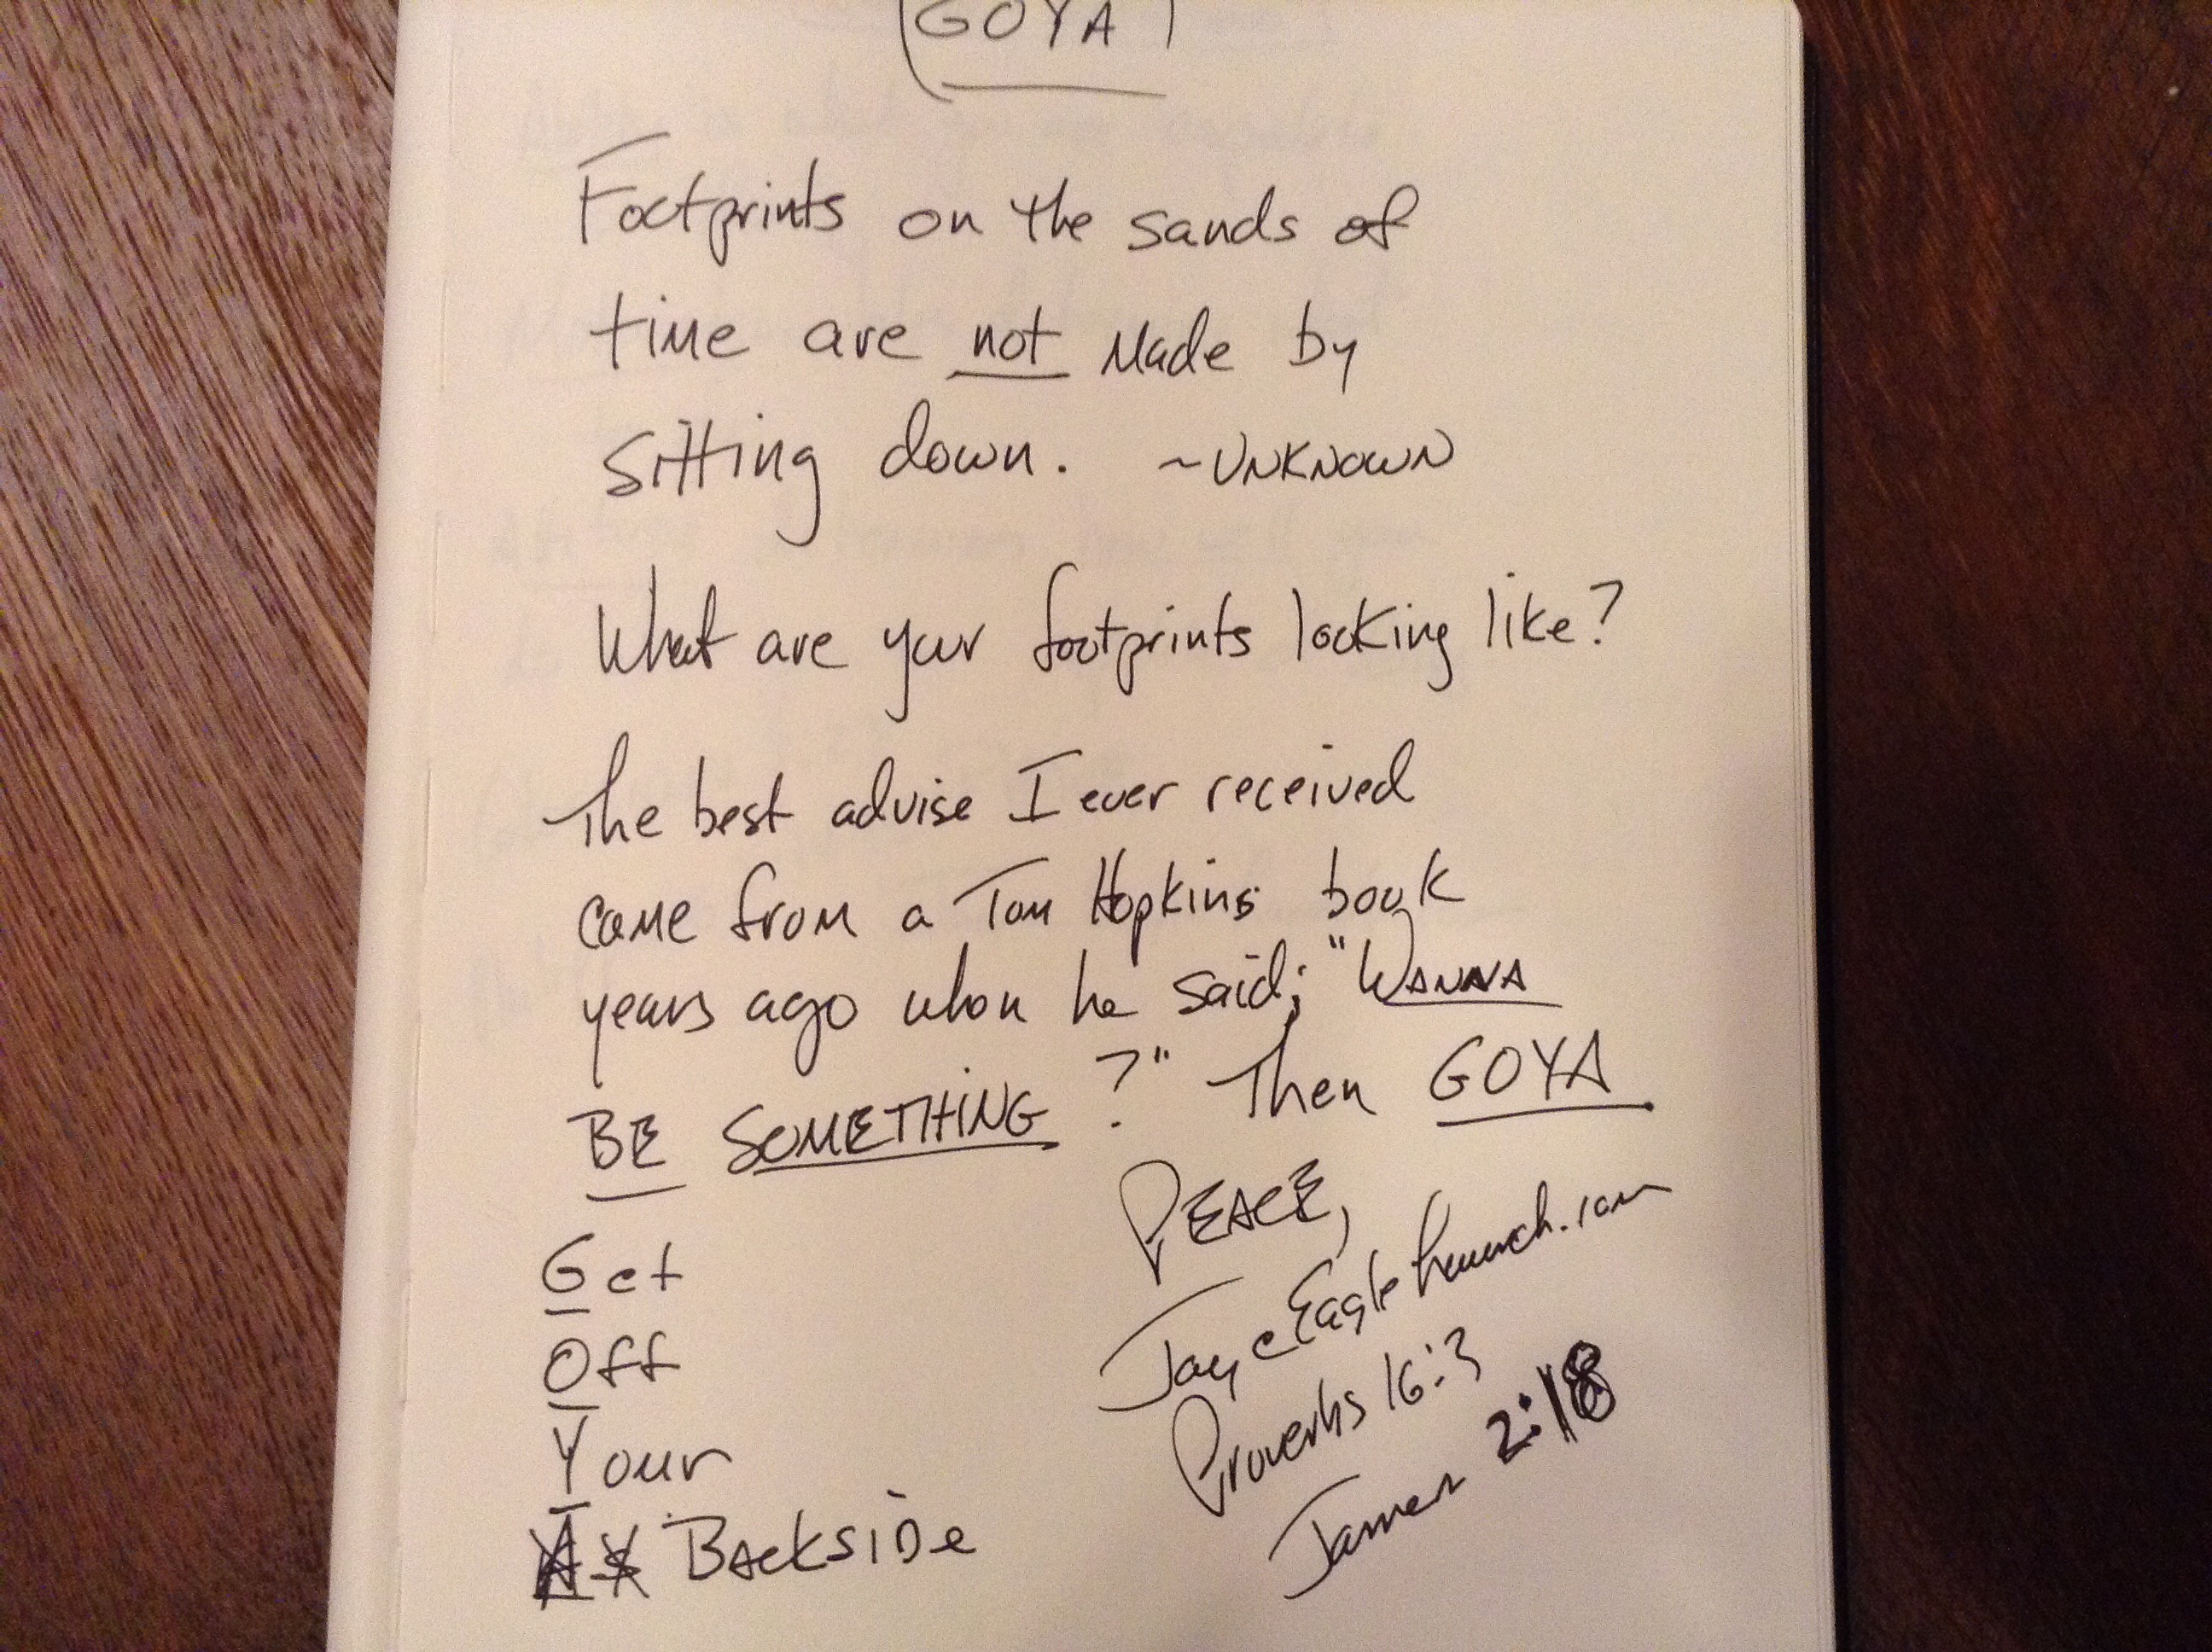 GOYA
Footprints on the sands of
time are not made by
sitting down. ~UNKNOWN
What are your footprints looking like?
The best advise I ever received
came from a Tom Hopkins book
years ago when he said; "WANNA
BE SOMETHING?" Then GOYA
Get
Off
Your
Backside
PEACE,
Jay
Proverbs 16:3
James 2:18